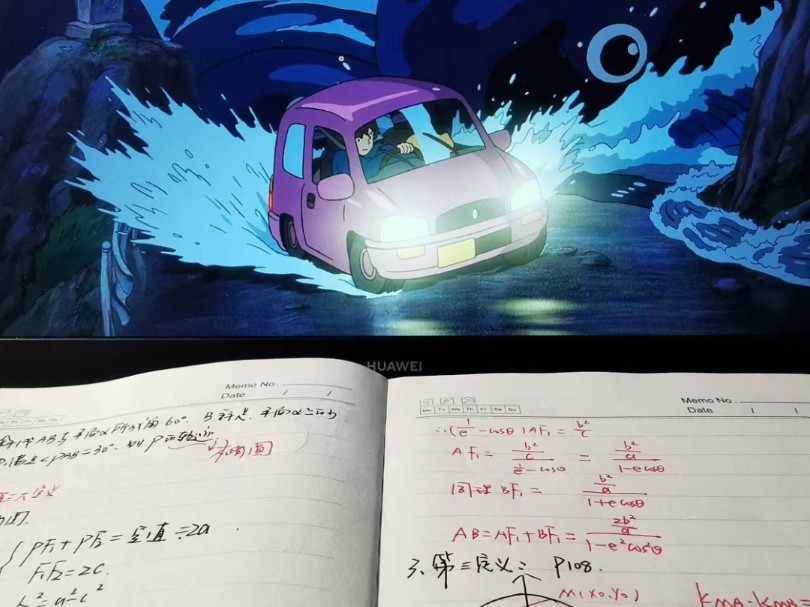 HUAWEI
Memo No.
Date / /
斜线AB与平面α所成角60°. B斜足, 平面α上的
点满足∠PAB=30°. 则P的轨迹
椭圆
定义
PF₁+PF₂=定值=2a
F₁F₂=2C.
b²=a²-c²
Mo Tu We Th Fr Sa Su
Memo No.
Date / /
∴(1/e-cosθ)AF₁=b²/c
AF₁=(b²/c)/(1/e-cosθ)=(b²/a)/(1-ecosθ)
同理BF₁=(b²/a)/(1+ecosθ)
AB=AF₁+BF₁=(2b²/a)/(1-e²cos²θ)
3、第三定义: P108.
M(x₀,y₀)
KMA·KMB=